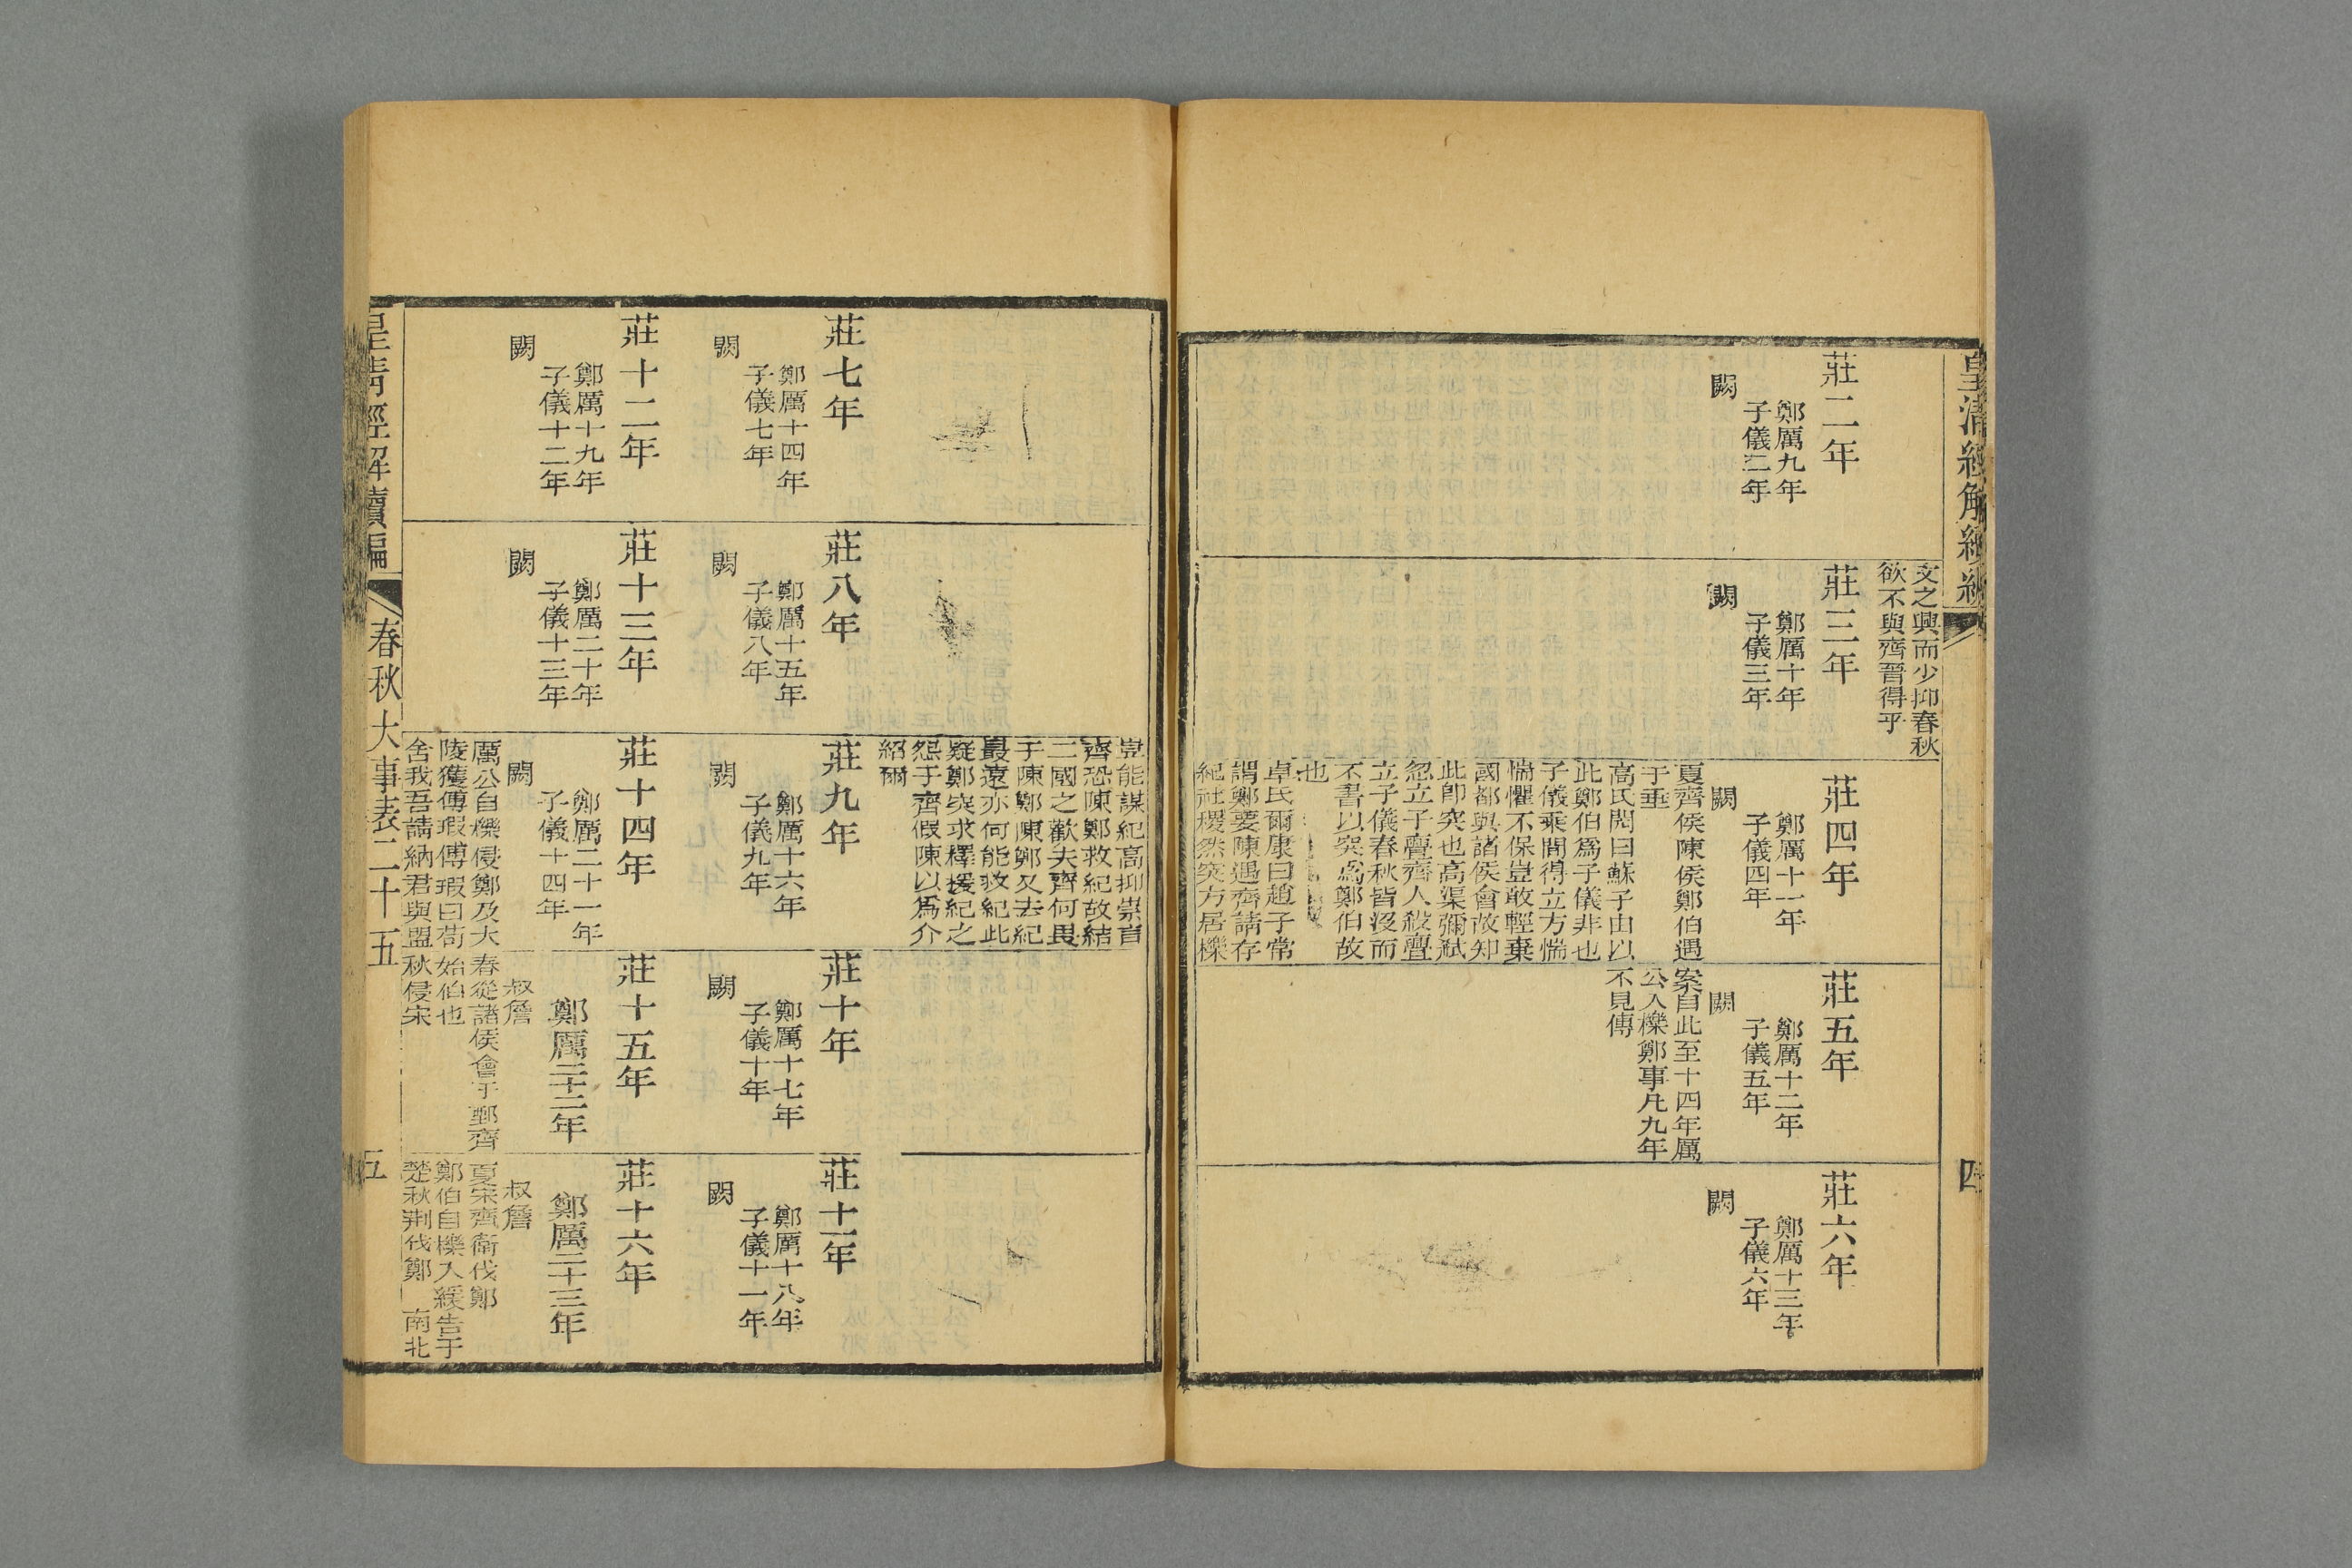 皇清經解續編
四
莊二年
鄭厲九年
子儀二年
闕
文之興而少抑春秋
欲不與齊晉得乎
莊三年
鄭厲十年
子儀三年
闕
莊四年
鄭厲十一年
子儀四年
闕
夏齊侯陳侯鄭伯遇
于垂
高氏閌曰蘇子由以
此鄭伯爲子儀非也
子儀乘間得立方惴
惴懼不保豈敢輕棄
國都與諸侯會故知
此卽突也高渠彌弑
忽立子亹齊人殺亹
立子儀春秋皆沒而
不書以突爲鄭伯故
也
卓氏爾康曰趙子常
謂鄭要陳遇齊請存
紀社稷然突方居櫟
莊五年
鄭厲十二年
子儀五年
闕
案自此至十四年厲
公入櫟鄭事凡九年
不見傳
莊六年
鄭厲十三年
子儀六年
闕
莊七年
鄭厲十四年
子儀七年
闕
莊八年
鄭厲十五年
子儀八年
闕
豈能謀紀高抑崇言
齊恐陳鄭救紀故結
二國之歡夫齊何畏
于陳鄭陳鄭又去紀
最遠亦何能救紀此
疑鄭突求釋援紀之
怨于齊假陳以爲介
紹爾
莊九年
鄭厲十六年
子儀九年
闕
莊十年
鄭厲十七年
子儀十年
闕
莊十一年
鄭厲十八年
子儀十一年
闕
莊十二年
鄭厲十九年
子儀十二年
闕
莊十三年
鄭厲二十年
子儀十三年
闕
莊十四年
鄭厲二十一年
子儀十四年
闕
厲公自櫟侵鄭及大
陵獲傅瑕傅瑕曰苟
舍我吾請納君與盟
莊十五年
鄭厲二十二年
叔詹
春從諸侯會于鄄齊
始伯也
秋侵宋
莊十六年
鄭厲二十三年
叔詹
夏宋齊衛伐鄭
鄭伯自櫟入緩告于
楚秋荆伐鄭 南北
皇清經解續編
春秋大事表二十五
五